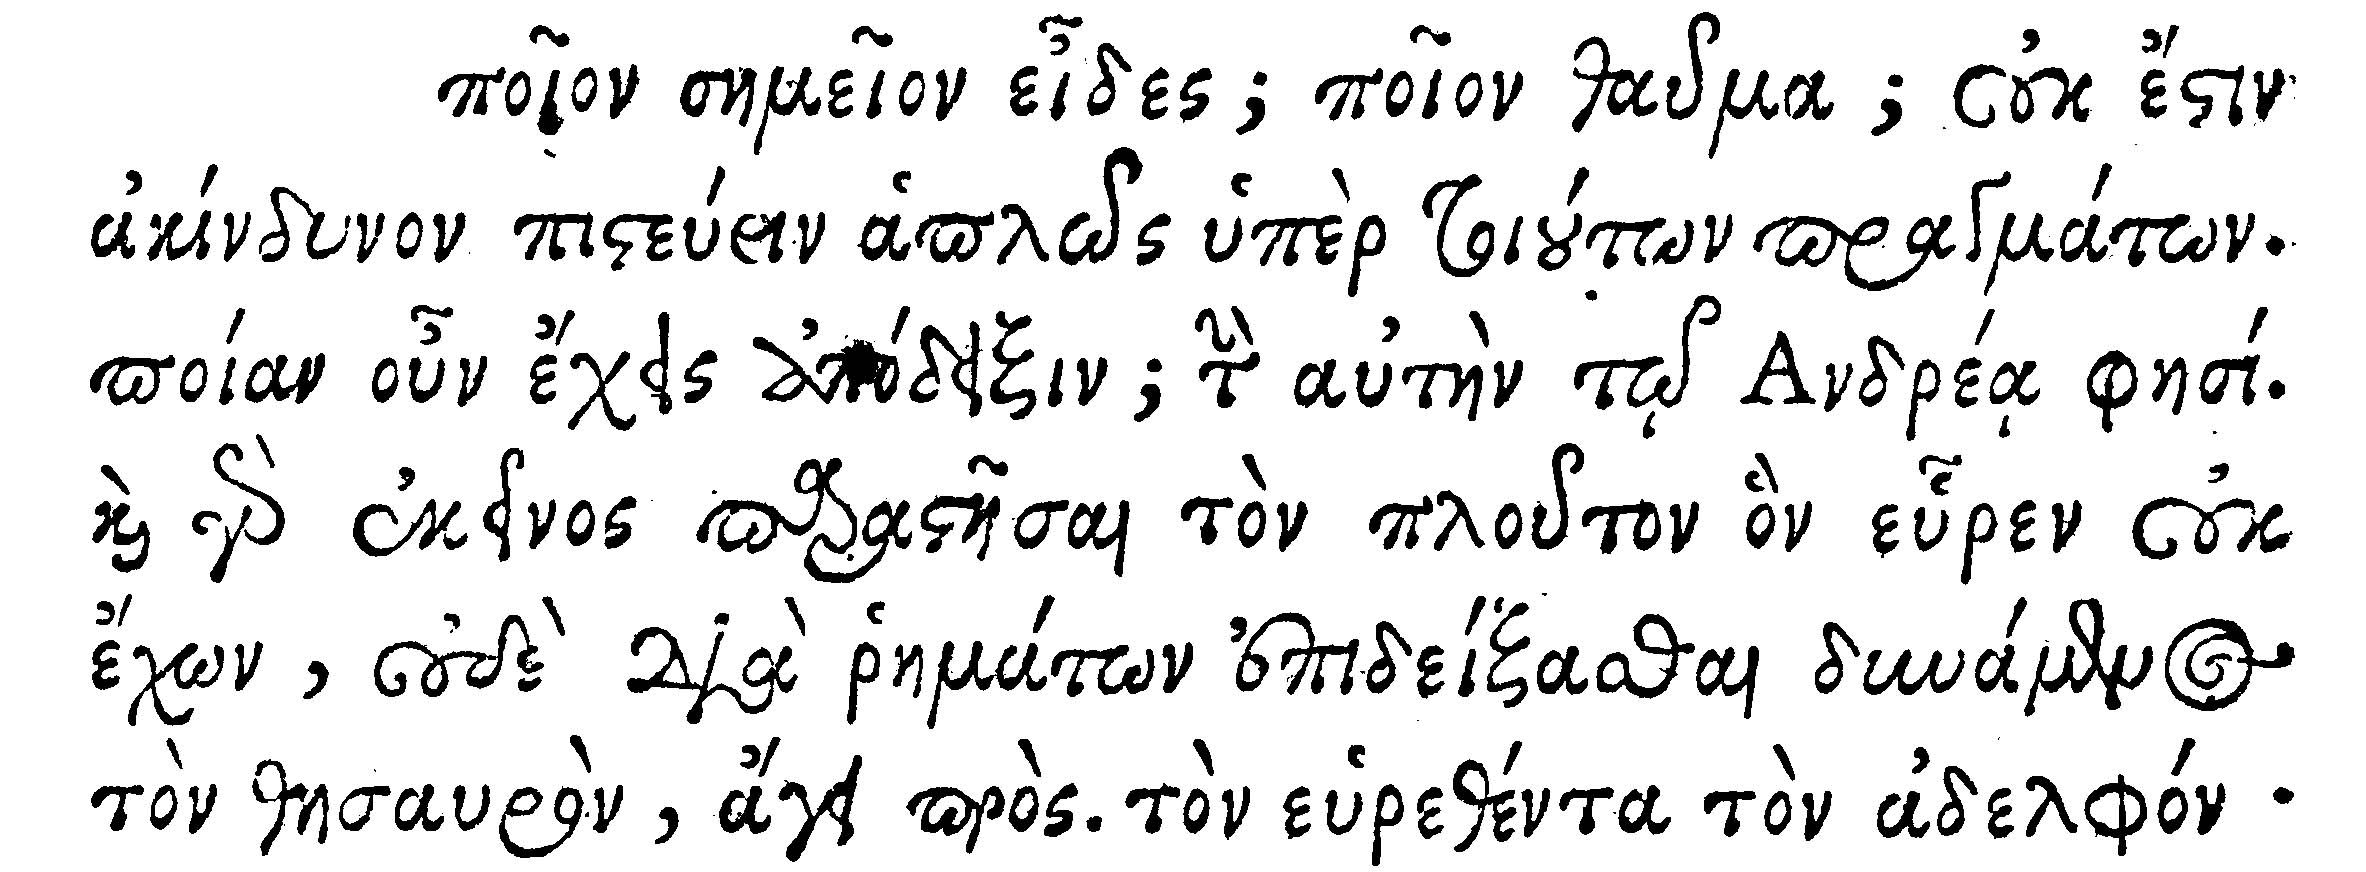 ποῖον σημεῖον εἶδες; ποῖον θαῦμα; οὐκ ἔστιν
ἀκίνδυνον πιστεύειν ἁπλῶς ὑπὲρ τοιούτων πραγμάτων.
ποίαν οὖν ἔχεις ἀπόδειξιν; αὐτὴν τῷ Ανδρέᾳ φησί.
καὶ γὰρ ἐκεῖνος παραστῆσαι τὸν πλοῦτον ὃν εὗρεν οὐκ
ἔχων, οὐδὲ διὰ ῥημάτων ἐπιδείξασθαι δυνάμενος
τὸν θησαυρὸν, ἄγει πρὸς. τὸν εὑρεθέντα τὸν ἀδελφόν.